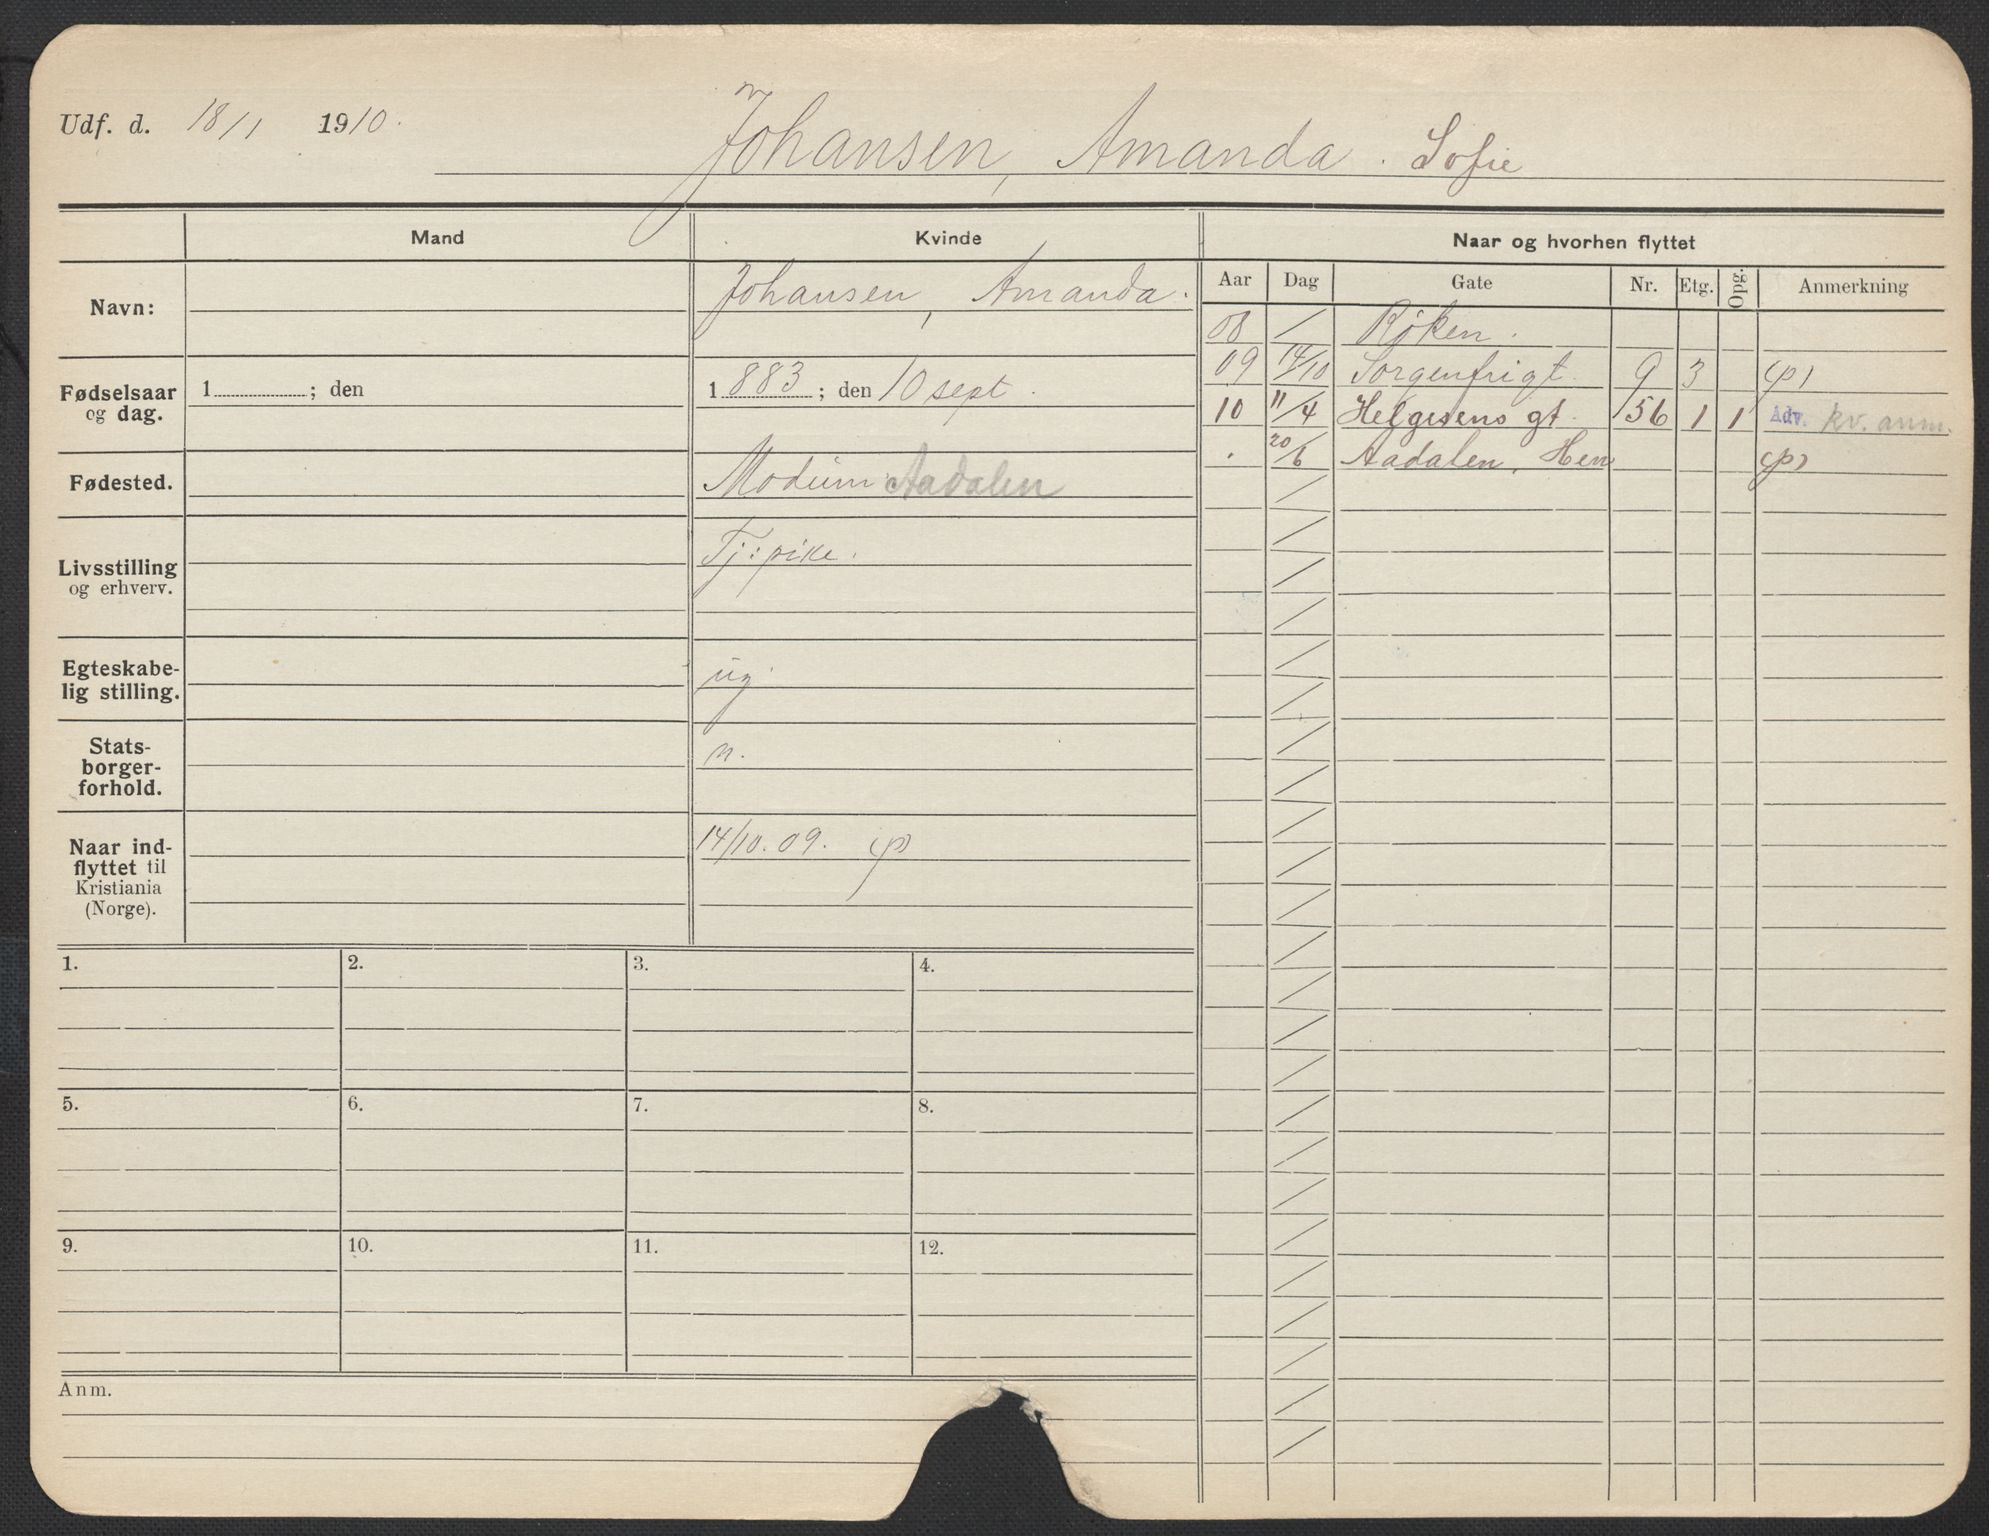 Udf. d. 18/1 1910.
Johansen, Amanda. Sofie
Mand Kvinde Naar og hvorhen flyttet
Navn: Johansen, Amanda.
Fødselsaar og dag. 1 ; den 1883 ; den 10 sept.
Fødested. Modum Aadalen
Livsstilling og erhverv. Tj: pike.
Egteskabe-
lig stilling. ug.
Stats-
borger-
forhold. n.
Naar ind-
flyttet til
Kristiania
(Norge). 14/10. 09. (p)
Aar Dag Gate Nr. Etg. Opg. Anmerkning
08 / Røken.
09 14/10 Sorgenfrigt. 9 3 (p)
10 11/4 Helgesens gt. 56 1 1 Adv. kv. anm.
. 20/6 Aadalen, Hen (p)
1. 2. 3. 4.
5. 6. 7. 8.
9. 10. 11. 12.
Anm.